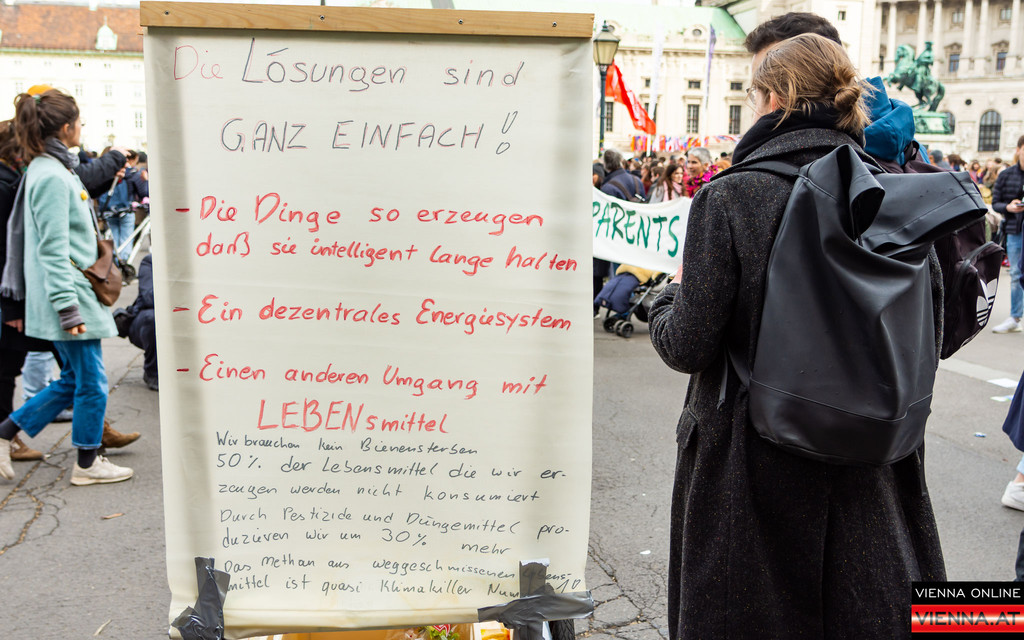 Die Lösungen sind
GANZ EINFACH!
- Die Dinge so erzeugen
daß sie intelligent lange halten
- Ein dezentrales Energiesystem
- Einen anderen Umgang mit
LEBENsmittel
Wir brauchen kein Bienensterben
50% der Lebensmittel die wir er-
zeugen werden nicht konsumiert
Durch Pestizide und Düngemittel pro-
duzieren wir um 30% mehr
Das Methan aus weggeschmissenen
mittel ist quasi Klimakiller
PARENTS
VIENNA ONLINE
VIENNA.AT